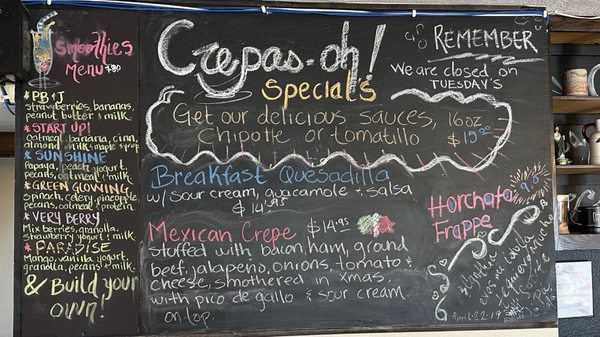 Smoothies
Menu
PB + J
strawberries, bananas,
peanut butter & milk.
START UP!
Oatmeal, banana, cinn,
almond milk & maple syrup
SUNSHINE
Papaya, peach, yogurt,
pecans, oatmeal & milk.
GREEN GLOWING
Spinach, celery, pineapple,
pecans, oatmeal & protein.
VERY BERRY
Mix berries, granolla,
strawberry yogurt & milk.
PARADISE
Mango, vanilla, yogurt,
granolla, pecans & milk.
& Build your
own!
Crepas-oh!
Specials
Get our delicious sauces, 16oz
Chipotle or tomatillo $15.
Breakfast Quesadilla
w/ sour cream, guacamole & salsa
$14.95
Mexican Crepe $14.95
stuffed with bacon, ham, ground
beef, jalapeño, onions, tomato &
cheese, smothered in xmas,
with pico de gallo & sour cream
on top.
REMEMBER
We are closed on
TUESDAY'S
Horchata
Frappe
April-22-19